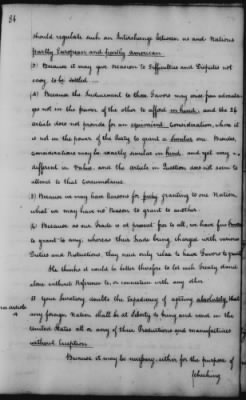 84
should regulate such an Interchange between us and Nations
partly European and partly American.
(3) Because it may give occasion to Difficulties and Disputes not
easy to be settled —
(4) Because the Inducement to these Favors may arise from advanta-
ges not in the power of the other to afford in kind, and the 26
article does not provide for an equivalent Consideration, where it
is not in the power of the Party to grant a similar one. Besides,
considerations may be exactly similar in kind, and yet very
different in Value, and the article in Question does not seem to
attend to that Circumstance.
(5) Because we may have Reasons for freely granting to one Nation
what we may have no Reason to grant to another.
(6) Because as our Trade is at present free to all, we have few Favors
to grant to any; whereas their Trade being charged with various
Duties and Restrictions, they need only relax to have Favors to grant.
He thinks it would be better therefore to let each Treaty stand
alone without Reference to, or connection with any other.
If your Secretary doubts the Expediency of agreeing absolutely that
any foreign Nation shall be at Liberty to bring and vend in the
United States all or any of their Productions and Manufactures
without Exception.
Because it may be necessary either for the purpose of
checking